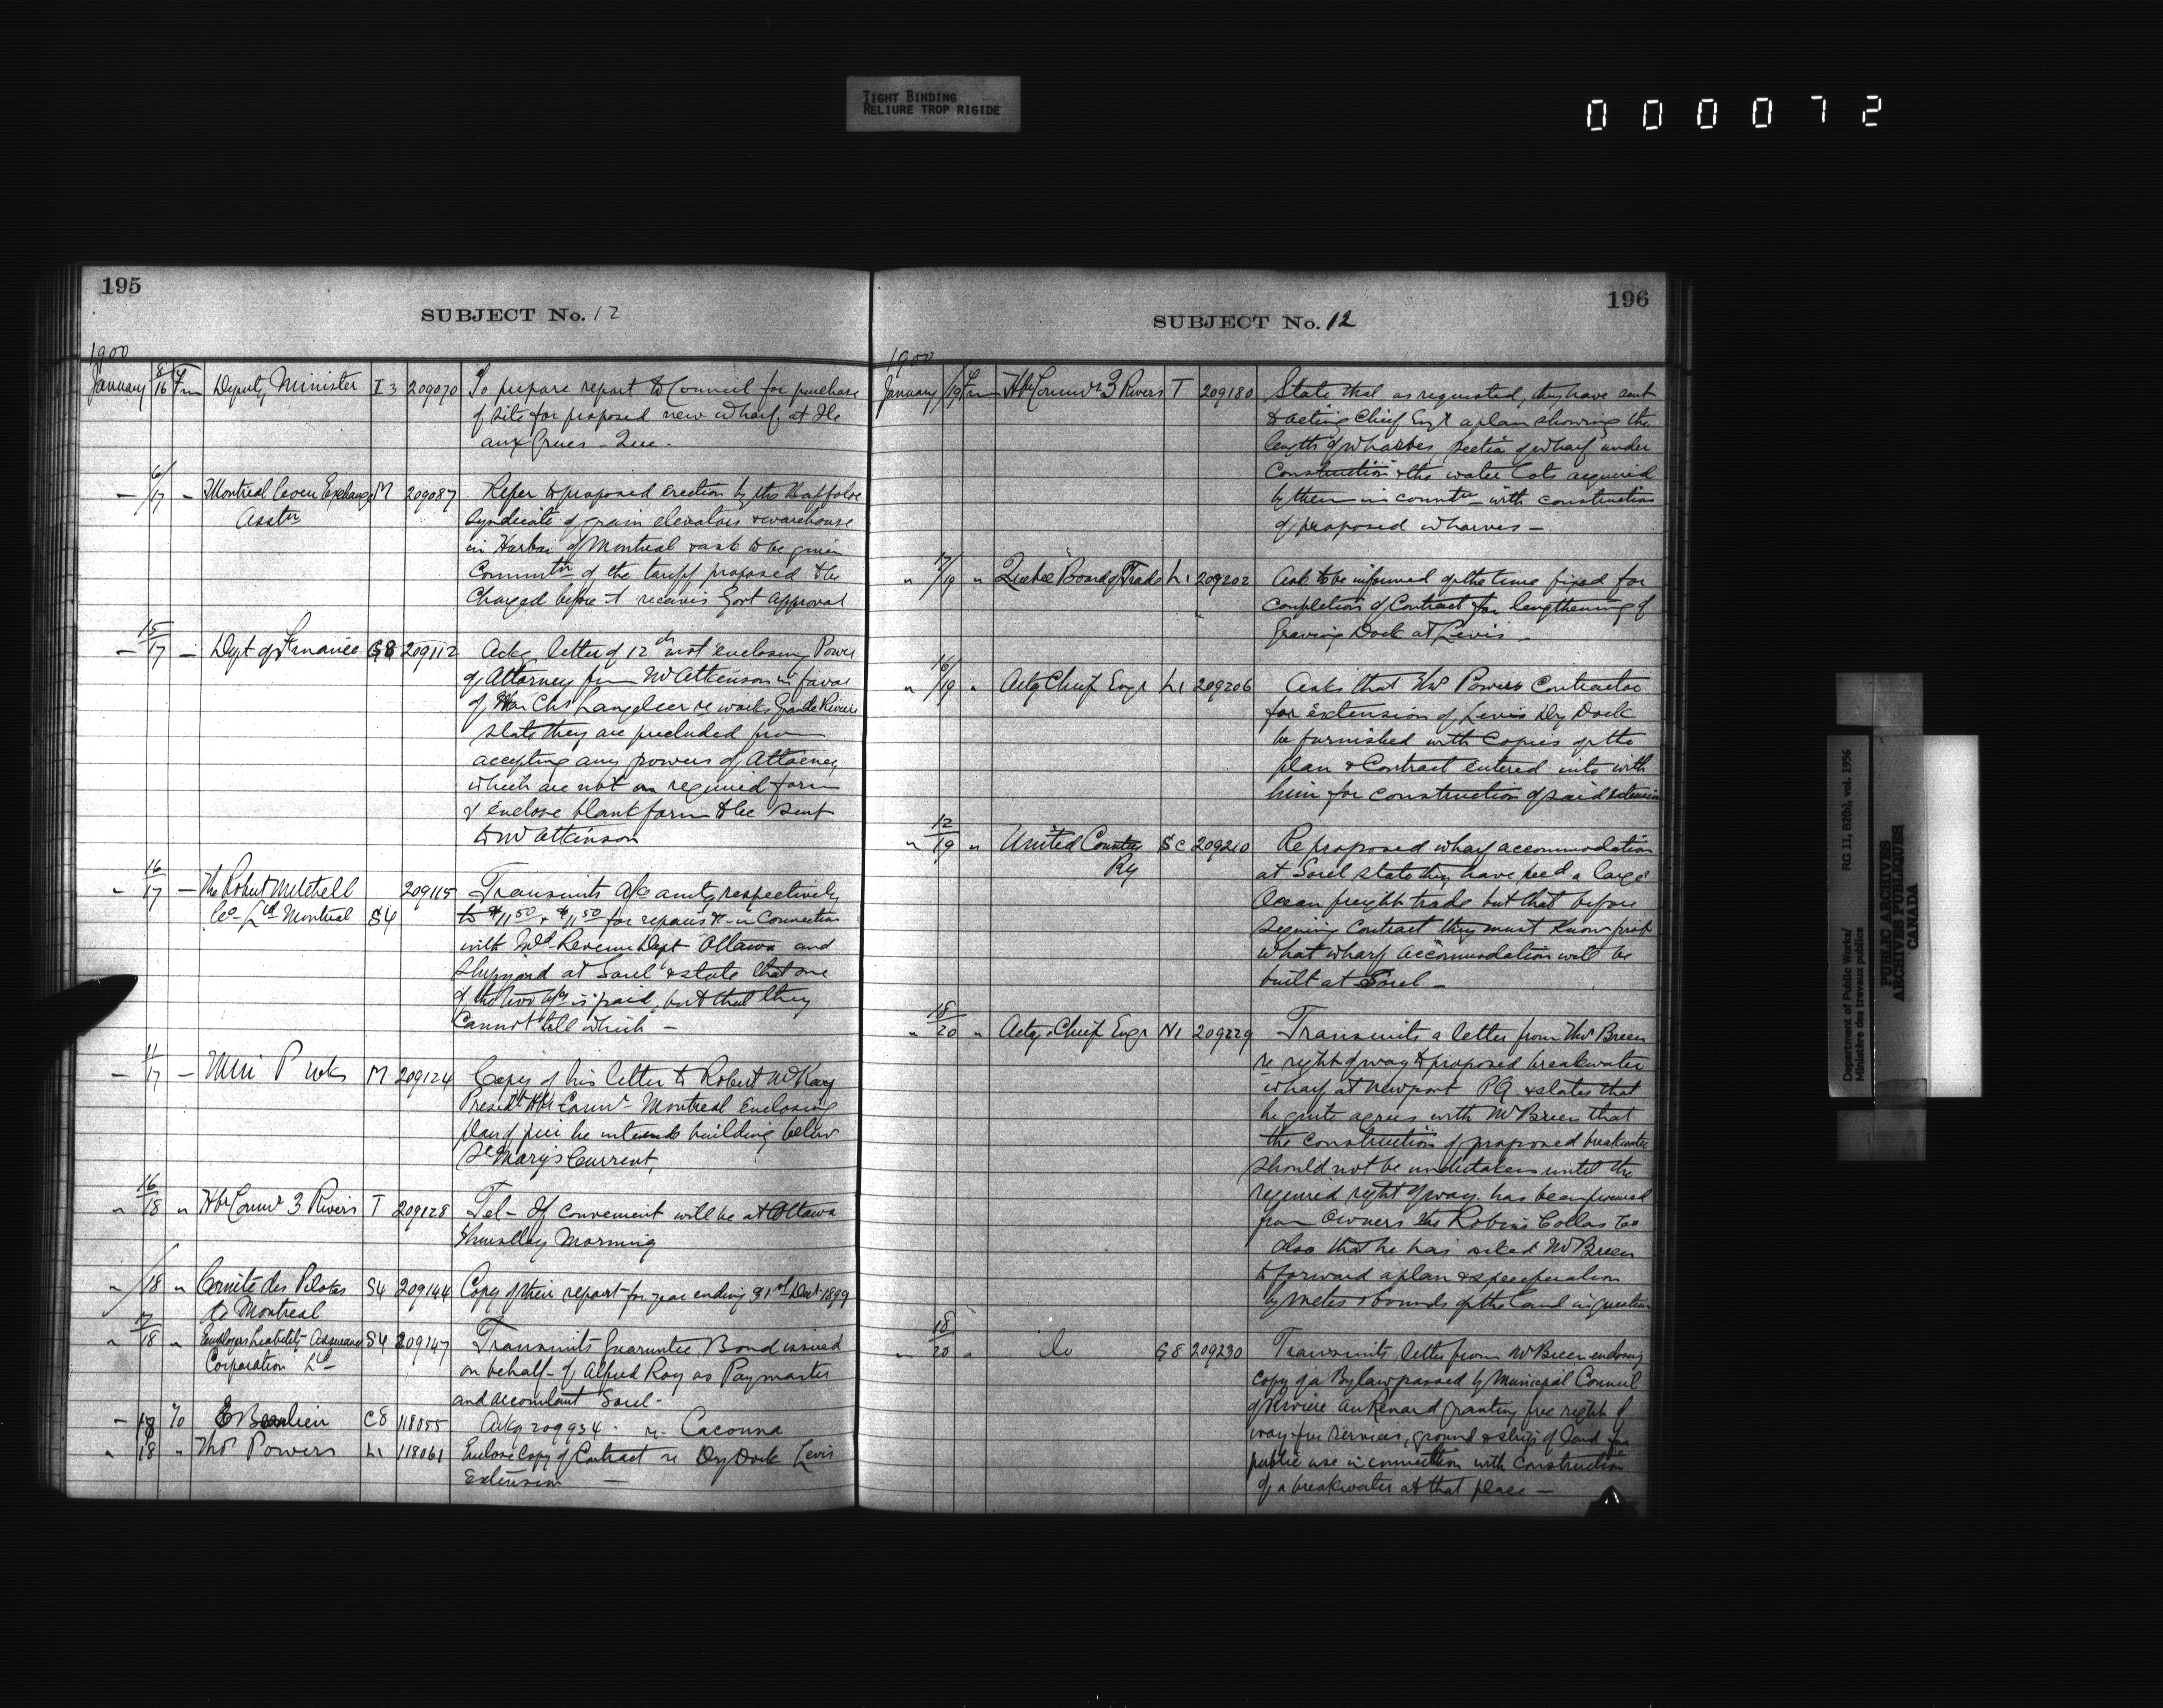 TIGHT BINDING
RELIURE TROP RIGIDE
0 0 0 0 7 2
195
SUBJECT No. 12
1900
January 8/16 Frm Deputy Minister I3 209070 To prepare report to Council for purchase
of site for proposed new wharf at Ile
aux Grues - Que.
6/17 Montreal Corn Exchange M 209087 Refer to proposed erection by the Buffaloe
Asstn Syndicate of grain elevators & warehouse
in Harbor of Montreal & ask to be given
Commtn of the tariff proposed to be
charged before it receives Govt approval
15/17 Dept of Finance G8 209112 Ackg letter of 12th inst enclosing Power
of Attorney from Mr Atkinson in favor
of Hon Chs Langelier re works Grande Riviere
state they are precluded from
accepting any powers of Attorney
which are not on required form
& enclose blank form to be sent
to Mr Atkinson
16/17 The Robert Mitchell 209115 Transmits a/cs amtg respectively
Co. Ltd Montreal S4 to $11.50 & $11.50 for repairs &c in connection
with Inld Revenue Dept Ottawa and
Shipyard at Sorel & state that one
of the two a/cs is paid, but that they
cannot tell which -
11/17 Min P Wks M 209124 Copy of his letter to Robert McKay
Presidt Hbr Comrs Montreal enclosing
plan of pier he intends building below
St Mary's Current,
16/18 " Hbr Comrs 3 Rivers T 209128 Tel- If convenient will be at Ottawa
Thursday Morning
/18 " Comité des Pilotes S4 209144 Copy of their report for year ending 31st Dec 1899
de Montreal
17/18 " Employers Liability Assurance S4 209147 Transmits Guarantee Bond issued
Corporation Ltd on behalf of Alfred Roy as Paymaster
and accountant Sorel -
To E Beaulieu C8 118055 Ackg 209934 re Cacouna
18 " Thos Powers L1 118061 Enclose Copy of Contract re Dry Dock Levis
Extension
196
SUBJECT No. 12
1900
January /19 Frm Hbr Comrs 3 Rivers T 209180 State that as requested, they have sent
to acting Chief Engr a plan showing the
length of wharves, section of wharf under
construction & the water lots acquired
by them in connectn with construction
of proposed wharves -
17/19 " Quebec Board of Trade L1 209202 Ask to be informed of the time fixed for
completion of Contract for lengthening of
Graving Dock at Levis -
16/19 " Actg Chief Engr L1 209206 Asks that Thos Powers Contractor
for extension of Levis Dry Dock
be furnished with copies of the
plan & Contract entered into with
him for construction of said extension
12/19 " United Counties SC 209210 Re proposed wharf accommodation
Ry at Sorel state they have a large
Ocean freight trade but that before
signing Contract they must know
what wharf accommodation will be
built at Sorel -
18/20 " Actg Chief Engr N1 209229 Transmits a letter from Thos Breen
re right of way to proposed breakwater
wharf at Newport P.Q. & states that
he quite agrees with Mr Breen that
the construction of proposed breakwater
should not be undertaken until the
required right of way has been procured
from owners the Robin Collas Co
also that he has asked Mr Breen
to forward a plan & specification
by metes & bounds of the land in question
18/20 " do G8 209230 Transmits letter from Mr Breen enclosing
copy of a By law passed by Municipal Council
of Rivière au Renard granting free right of
way free services, ground & strip of land for
public use in connection with construction
of a breakwater at that place -
Department of Public Works/ RG 11, B2(b), vol. 1956
Ministère des travaux publics
PUBLIC ARCHIVES
ARCHIVES PUBLIQUES
CANADA